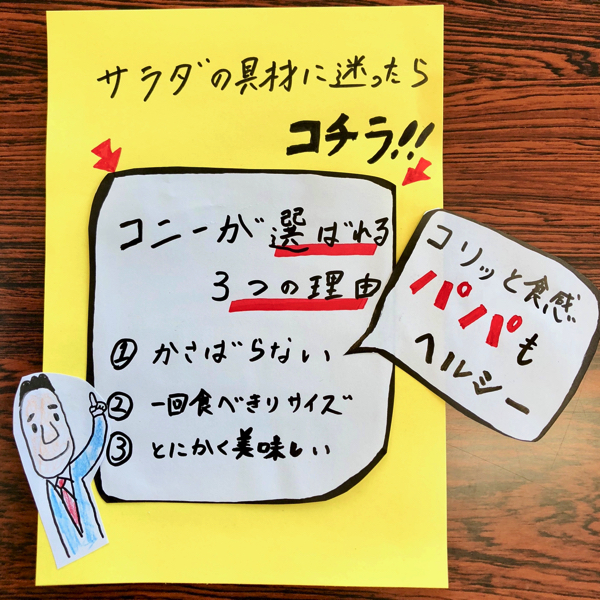 サラダの具材に迷ったら
コチラ!!
コニーが選ばれる
3つの理由
① かさばらない
② 一回食べきりサイズ
③ とにかく美味しい
コリッと食感
パパも
ヘルシー